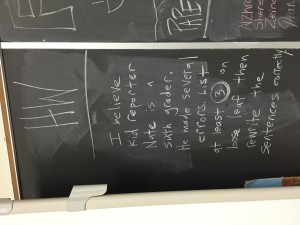 HW
I believe
kid reporter
Nate is a
sixth grader.
He made several
errors. List
at least 3 on
loose leaf then
rewrite the
sentences correctly